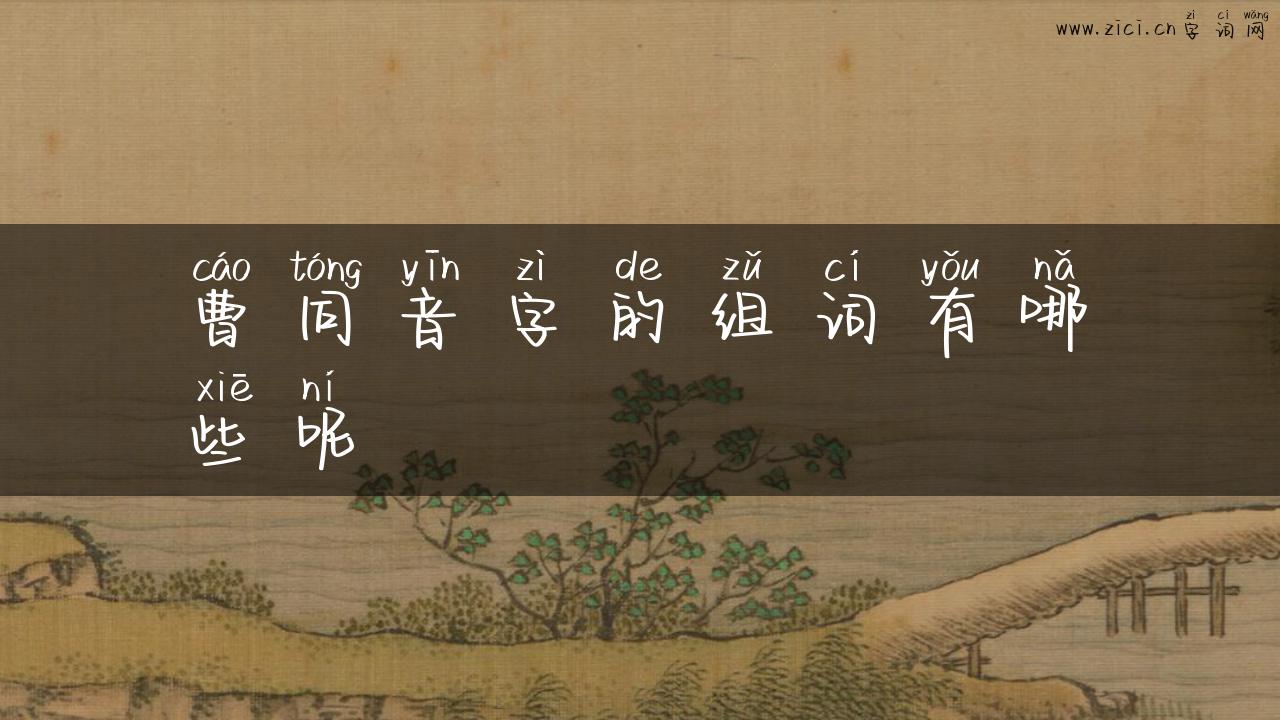 zì cí wǎng
www.zici.cn 字词网
cáo tóng yīn zì de zǔ cí yǒu nǎ
曹同音字的组词有哪
xiē ní
些呢